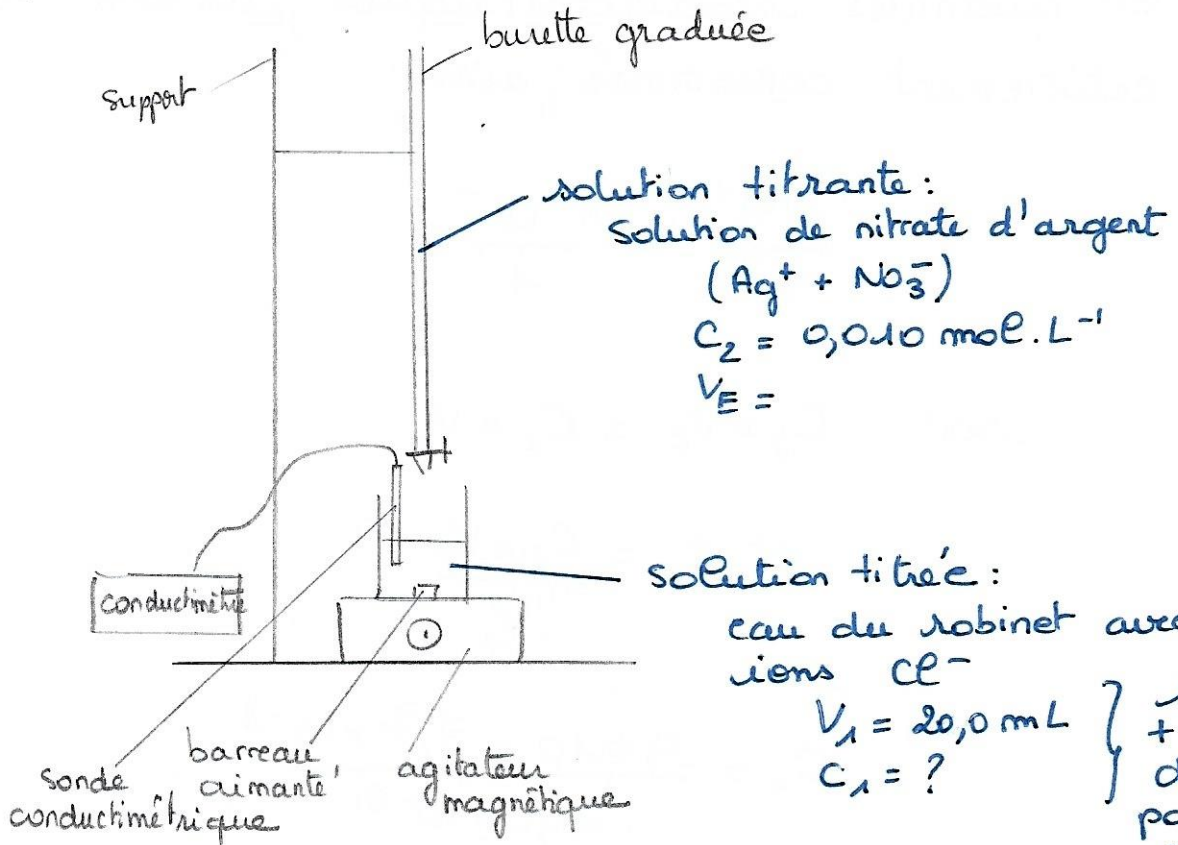 burette graduée
support
solution titrante :
solution de nitrate d'argent
(Ag⁺ + NO₃⁻)
C₂ = 0,010 mol.L⁻¹
V_E =
conductimètre
solution titrée :
eau du robinet avec
ions Cl⁻
V₁ = 20,0 mL
C₁ = ?
+
sonde conductimétrique
barreau aimanté
agitateur magnétique